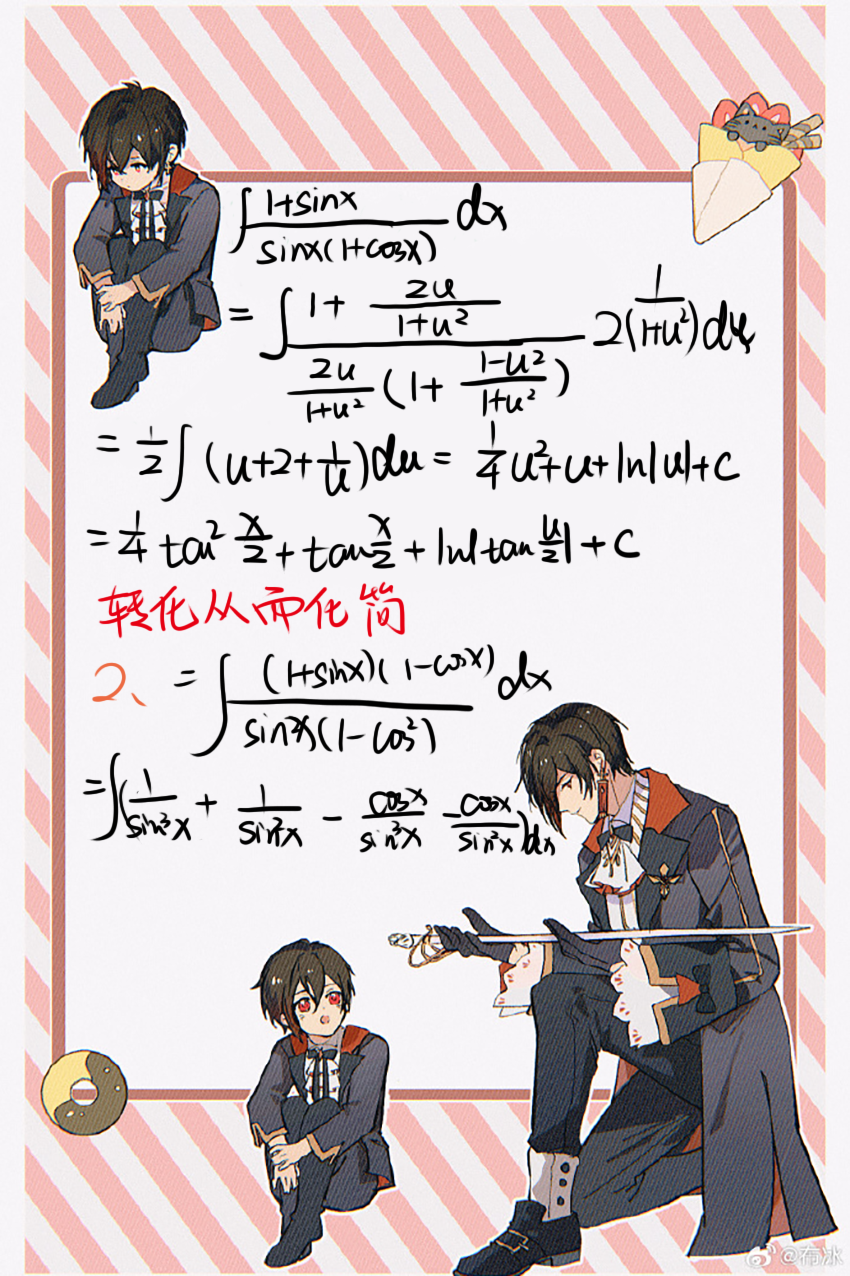 ∫ (1+sinx)/(sinx(1+cosx)) dx
= ∫ (1+ 2u/(1+u²))/(2u/(1+u²) (1+ (1-u²)/(1+u²))) 2(1/(1+u²))du
= 1/2 ∫ (u+2+1/u)du = 1/4 u²+u+ln|u|+c
= 1/4 tan² x/2 + tan x/2 + ln|tan u/2| + c
转化从而化简
2、 = ∫ (1+sinx)(1-cosx)/(sinx(1-cos²)) dx
= ∫(1/sin³x + 1/sin²x - cosx/sin³x - cosx/sin²x)dx
@布冰